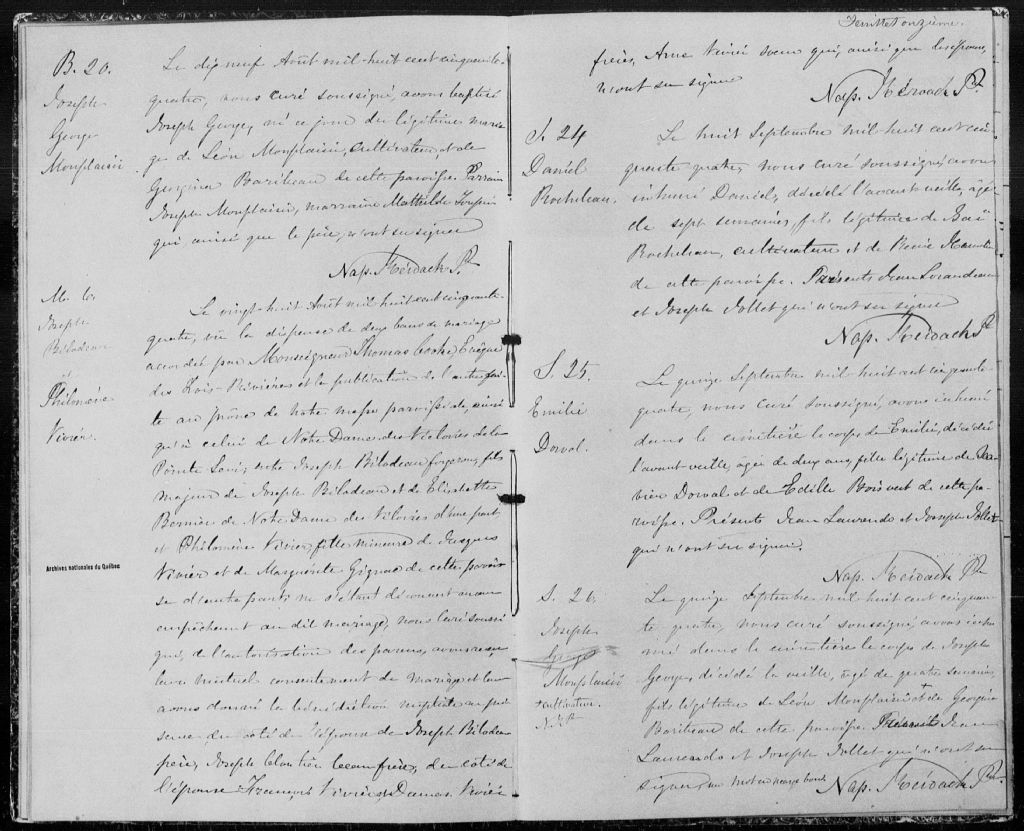 B. 20.
Joseph
George
Monplaisir
Le dix neuf Août mil-huit cent cinquante
quatre, nous curé soussigné, avons baptisé
Joseph George, né ce jour du légitime maria
ge de Léon Monplaisir, cultivateur, et de
Georgina Baribeau de cette paroisse. Parrain
Joseph Monplaisir, marraine Mathilde
qui ainsi que le père, n'ont su signer
Nap. Kéroack Ptre
M. 6.
Joseph
Bilodeau
et
Philomène
Vivier.
Le vingt-huit Août mil huit cent cinquante
quatre, vu la dispense de deux bans de mariage
accordée par Monseigneur Thomas Cooke Evêque
des Trois-Rivières et la publication de l'autre fai
te au prône de notre messe paroissiale, ainsi
qu'à celui de Notre Dame des Victoires de la
Pointe Levi, entre Joseph Bilodeau forgeron, fils
majeur de Joseph Bilodeau et de Elizabeth
Bernier de Notre Dame des Victoires d'une part
et Philomène Vivier fille mineure de Jacques
Vivier et de Marguerite Gignac de cette parois
se d'autre part; ne s'étant découvert aucun
empêchement au dit mariage, nous curé soussi
gné, de l'autorisation des parens, avons reçu
leur mutuel consentement de mariage et leur
avons donné la bénédiction nuptiale en pré
sence du côté de l'époux de Joseph Bilodeau
père, Joseph Cloutier beaufrère, du côté de
l'épouse François Vivier, Damas Vivier
Archives nationales du Québec
Feuillet onzième.
frères, Anne Vivier soeur qui, ainsi que les époux,
n'ont su signer
Nap. Kéroack Ptre
S. 24
Daniel
Rocheleau.
Le huit Septembre mil huit cent cin
quante quatre, nous curé soussigné, avons
inhumé Daniel, décédé l'avant veille, âgé
de sept semaines, fils légitime de
Rocheleau, cultivateur et de
de cette paroisse. Présents Jean Laurendeau
et Joseph Jollet qui n'ont su signer
Nap. Kéroack Ptre
S. 25.
Emilie
Dorval.
Le quinze Septembre mil huit cent cinquante
quatre, nous curé soussigné, avons inhumé
dans le cimetière le corps de Emilie, décédée
l'avant veille âgée de deux ans, fille légitime de Xa
vier Dorval et de Edille Boisvert de cette pa
roisse. Présents Jean Laurendo et Joseph Jollet
qui n'ont su signer.
Nap. Kéroack Ptre
S. 26.
Joseph
George
Monplaisir
cultivateur.
Le quinze Septembre mil huit cent cinquan
te quatre, nous curé soussigné, avons inhu
mé dans le cimetière le corps de Joseph
George, décédé la veille, âgé de quatre semaines
fils légitime de Léon Monplaisir + et de Georgina
Baribeau de cette paroisse. Présents Jean
Laurendo et Joseph Jollet qui n'ont su
signer, un mot en marge bon
Nap. Kéroack Ptre